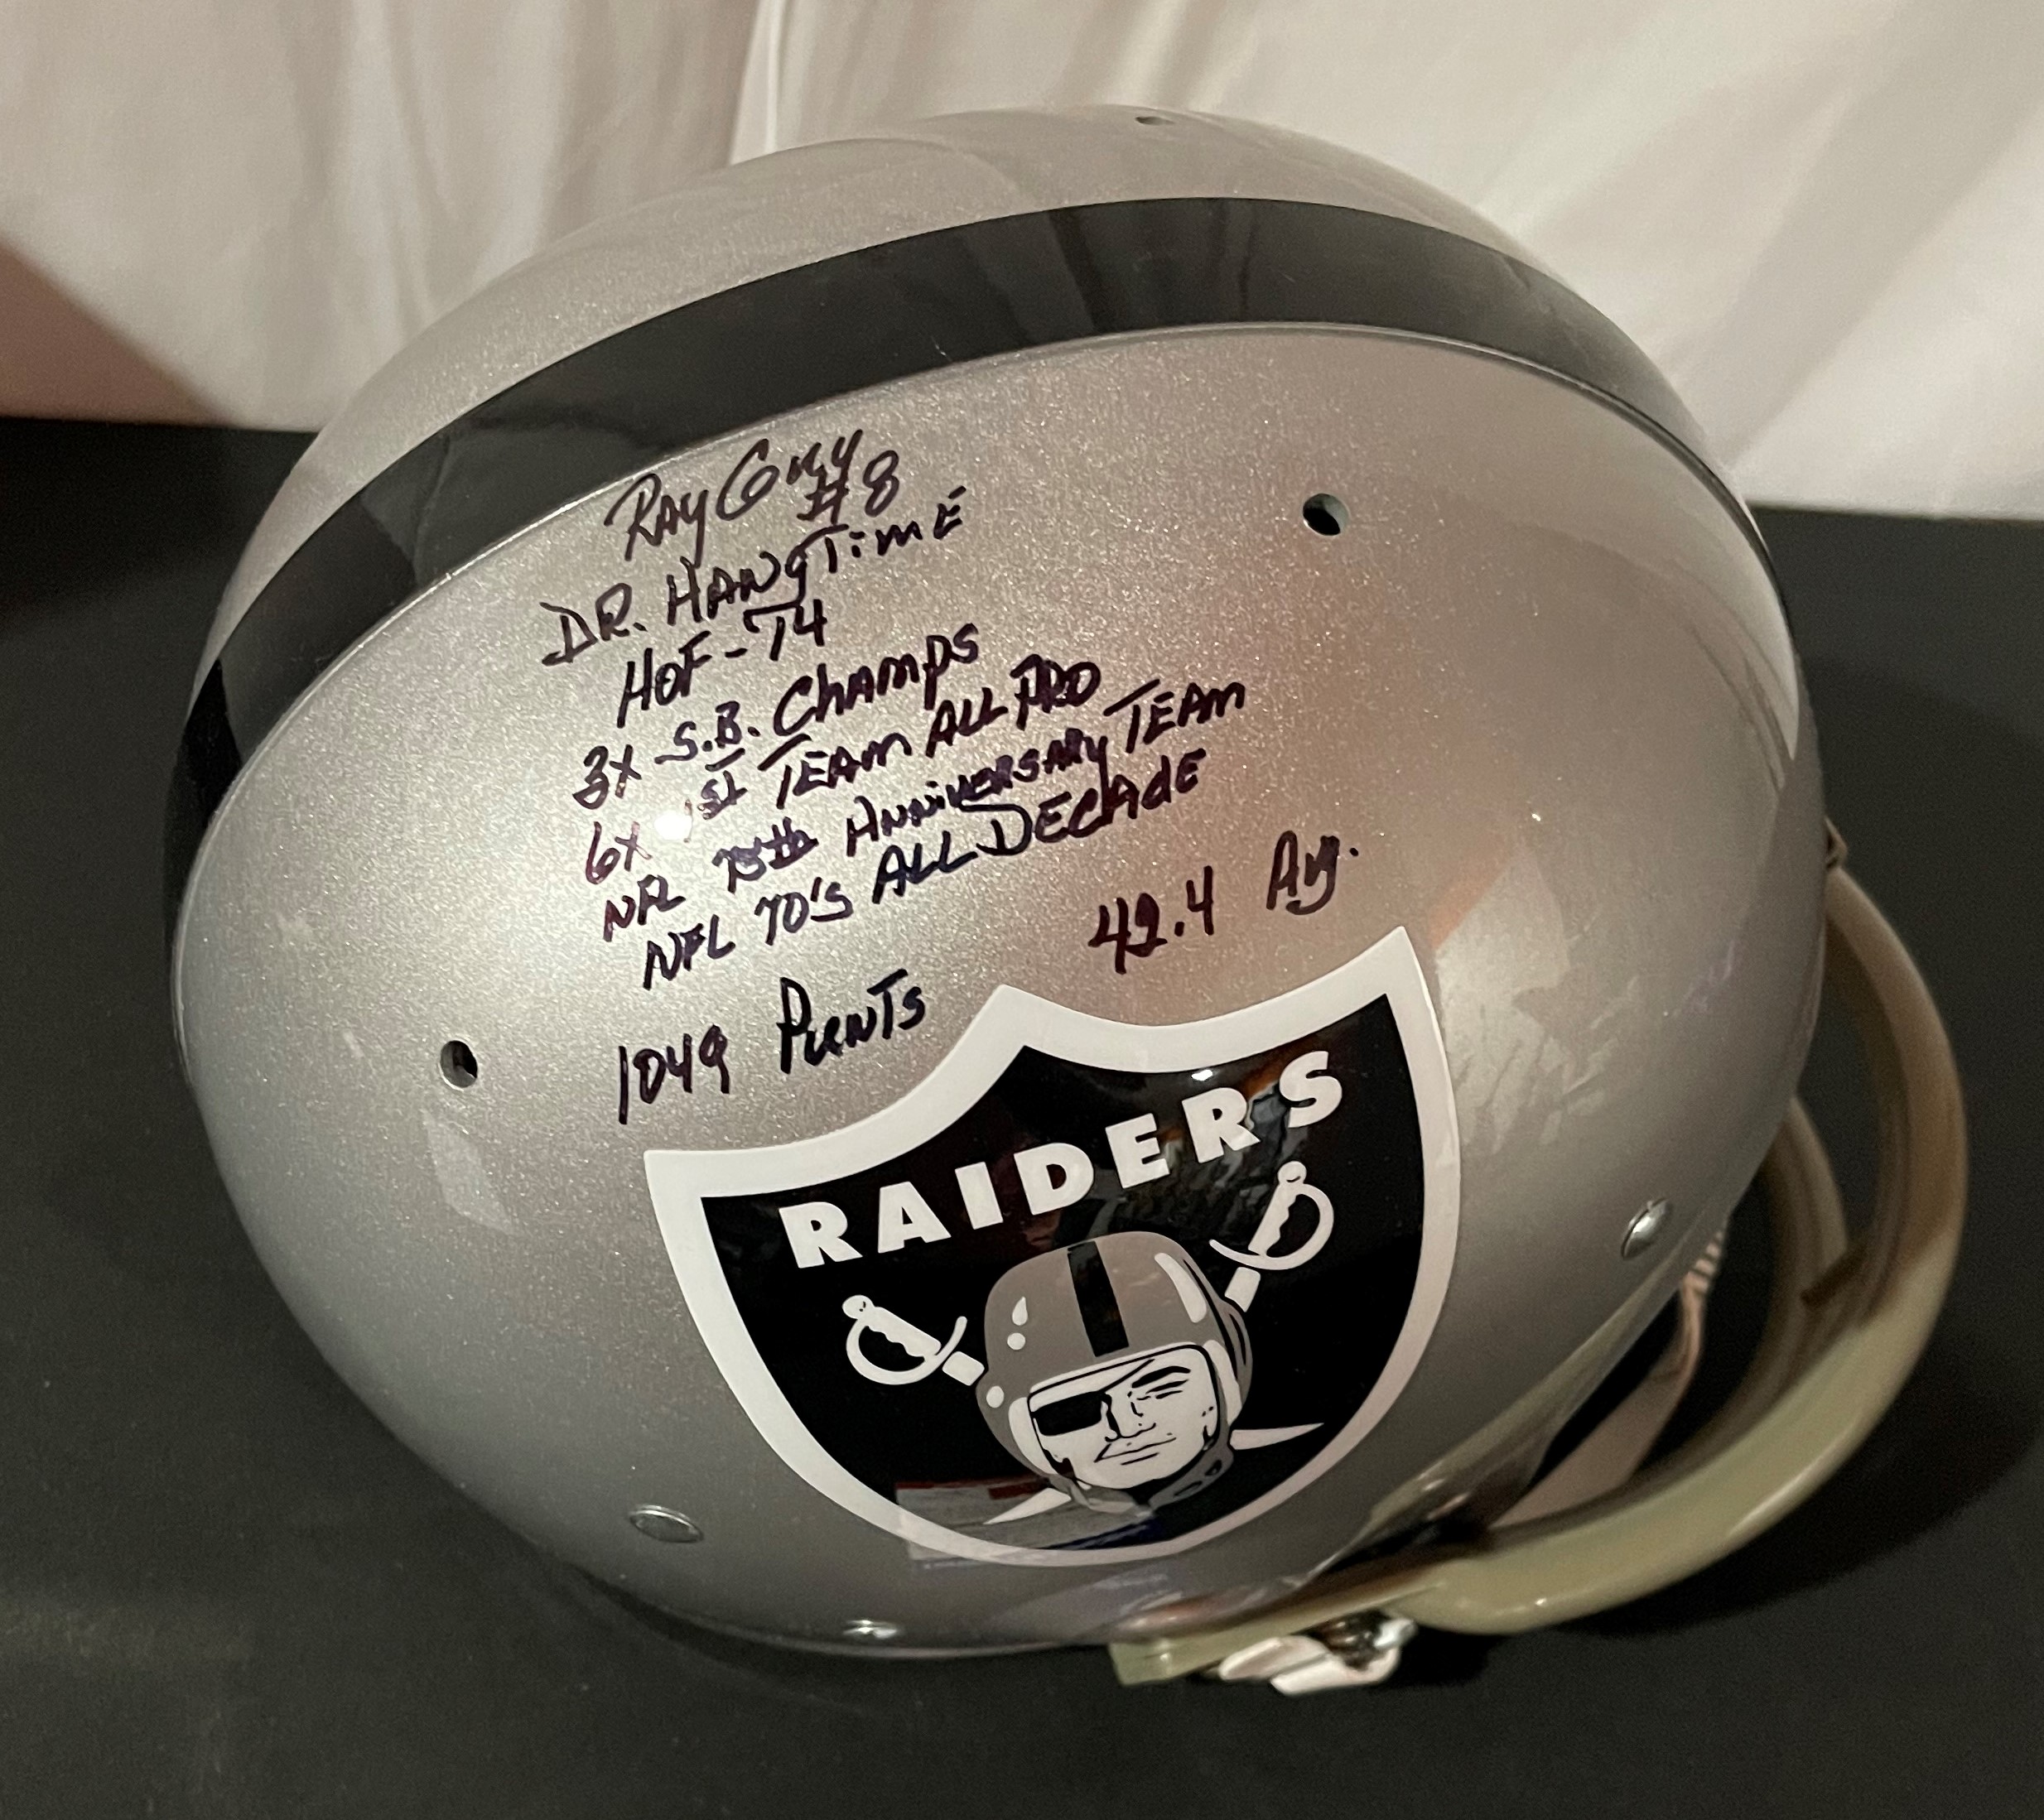 Ray Guy
#8
DR. HANgTimE
HOF-74
3x S.B. Champs
6x 1st TEAm ALL PRO
NFL 75th ANNiVERSARy TEAm
NFL 70'S ALL DECAdE
42.4 Avg.
1049 PunTs
RAIDERS